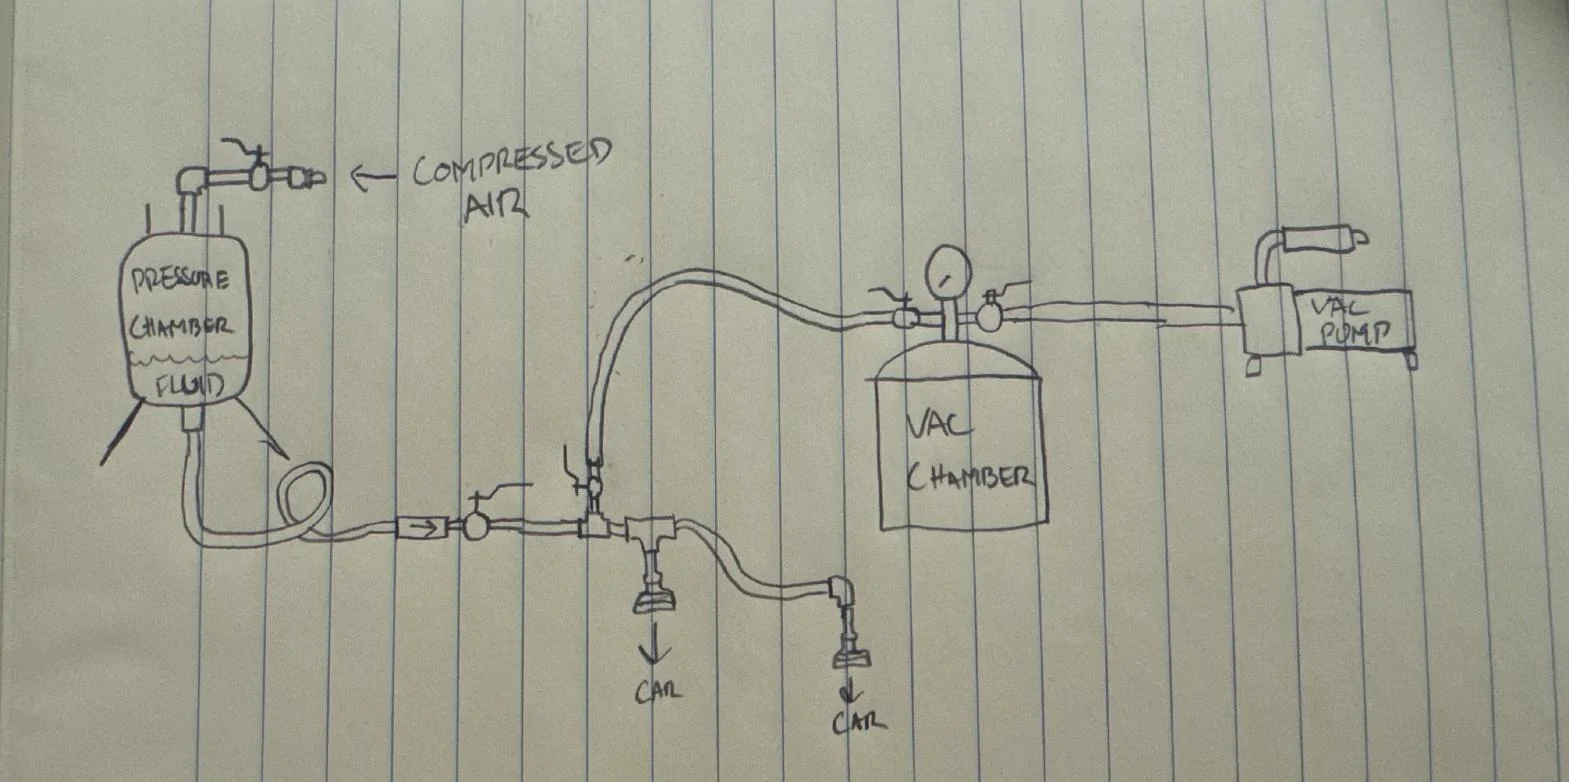 COMPRESSED
AIR
PRESSURE
CHAMBER
FLUID
VAC
PUMP
VAC
CHAMBER
CAR
CAR